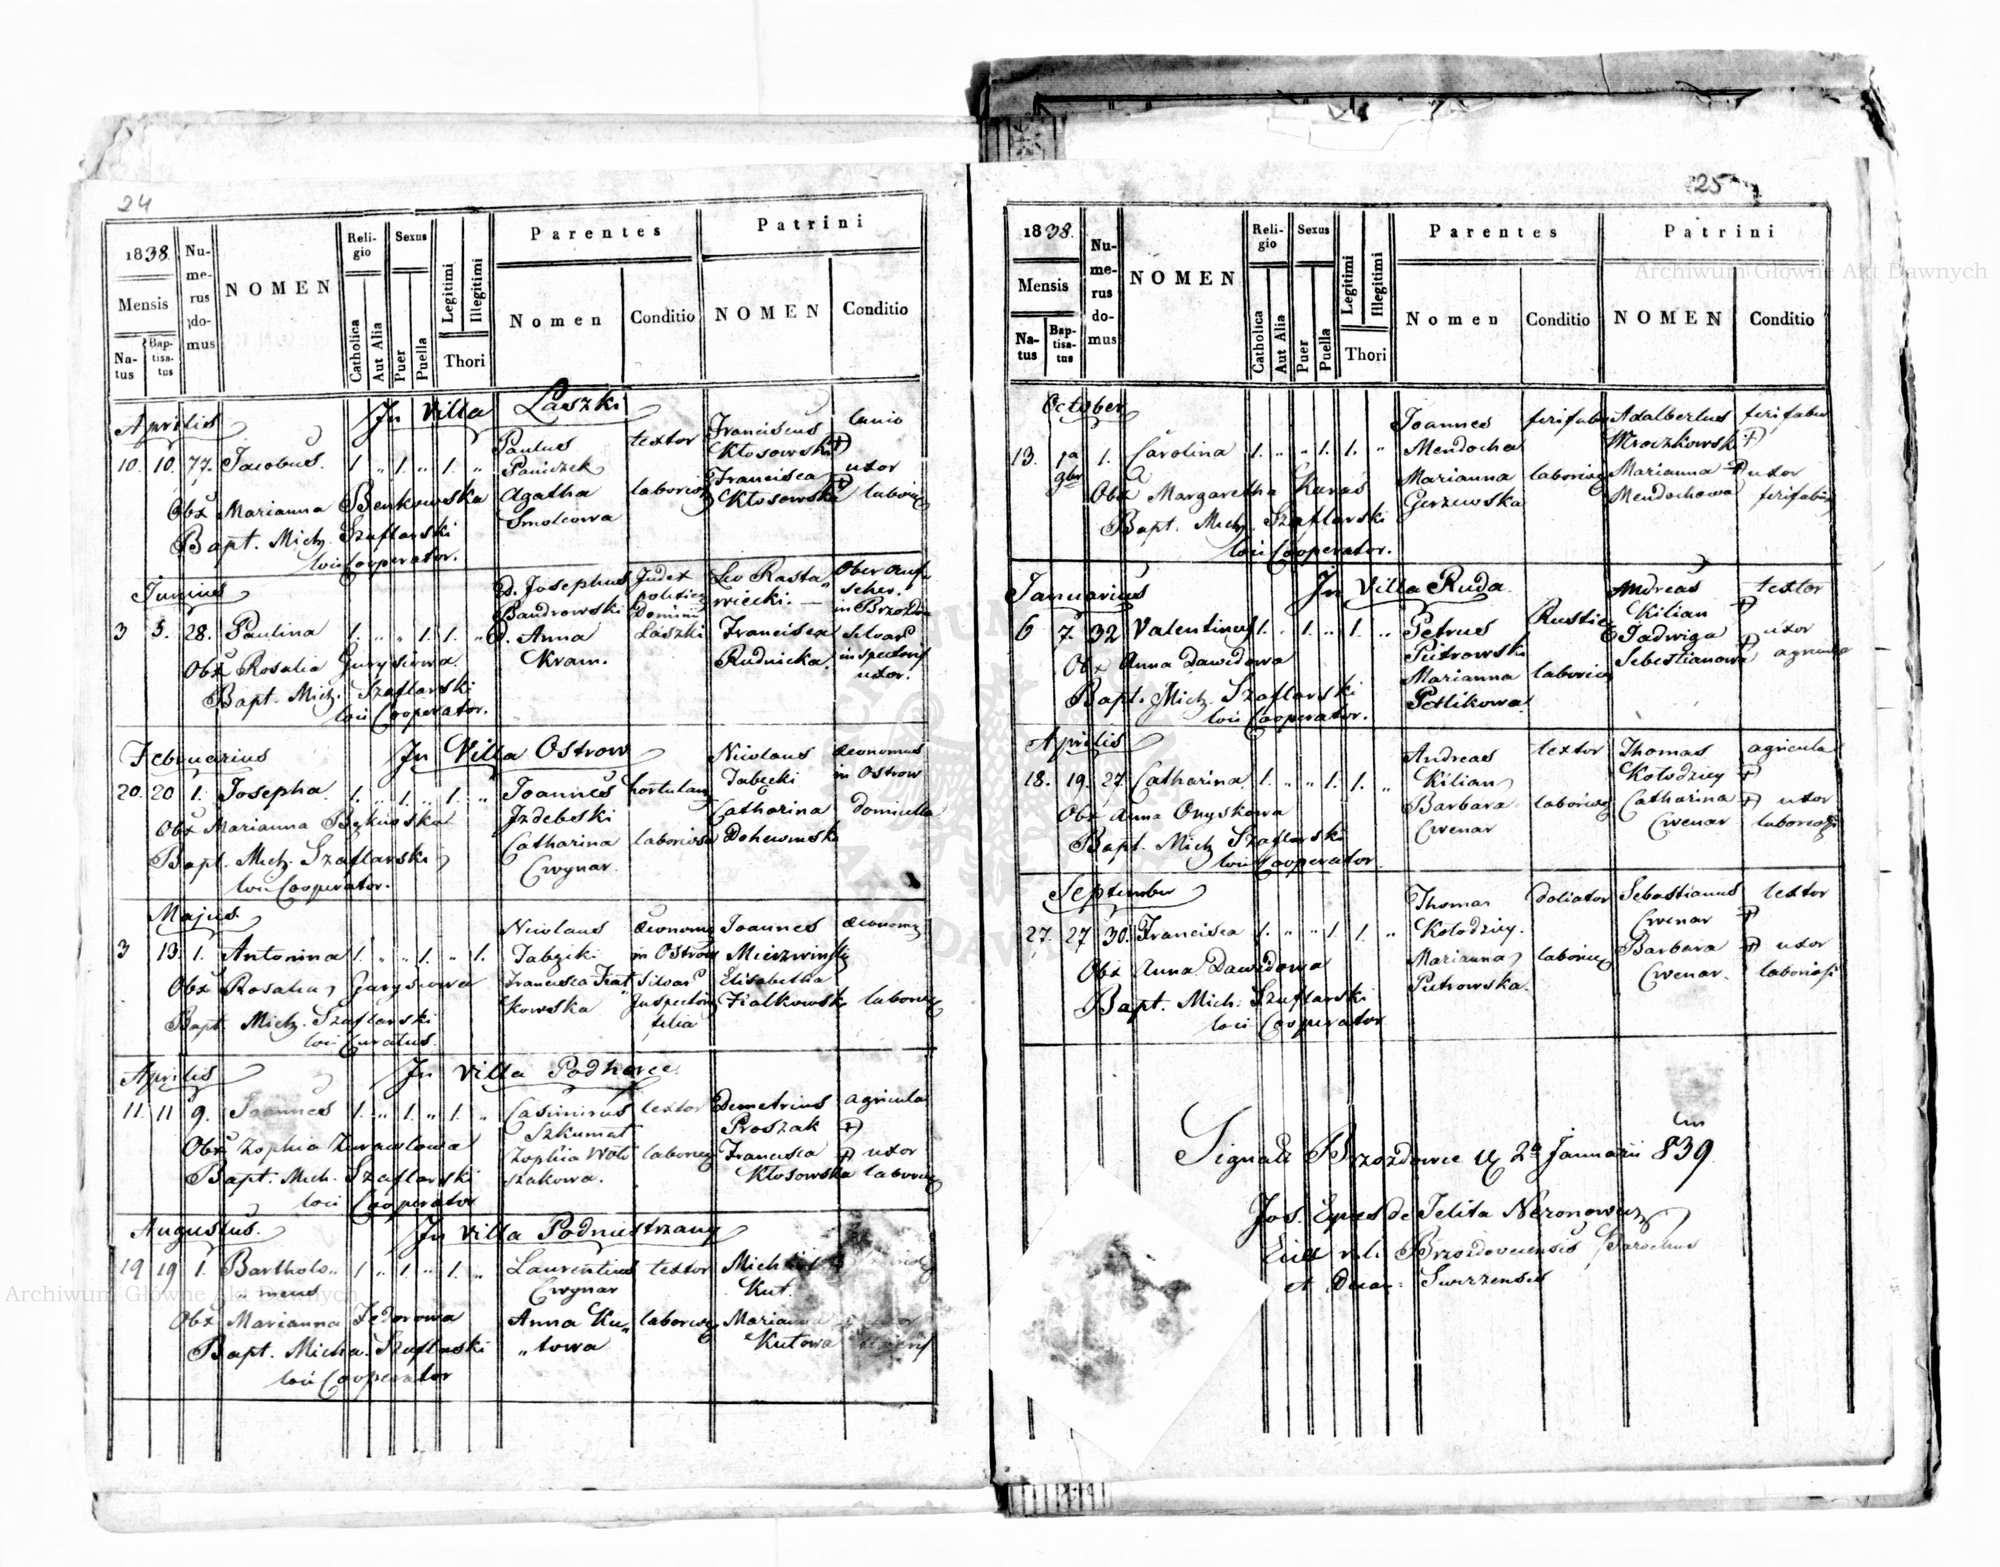 24
1838.
Mensis
Natus
Baptisatus
Numerus domus
NOMEN
Religio
Catholica
Aut Alia
Sexus
Puer
Puella
Legitimi
Illegitimi
Thori
Parentes
Nomen
Conditio
Patrini
NOMEN
Conditio
Aprilis In Villa Laszki
10. 10. 77. Jacobus. 1 " 1. " 1. "
Obx Marianna Benkowska
Bapt. Mich. Szaflarski
loci Cooperator.
Paulus textor
Paniczek
Agatha laboriosa
Smolcowa
Franciscus lanio
Kłosowski
Francisca uxor
Kłosowska
Junius
3 5. 28. Paulina 1. " " 1. 1. "
Obx Rosalia Jurysiowa
Bapt. Mich. Szaflarski
loci Cooperator.
D. Josephus Judex
Bandrowski Dominii
D. Anna Laszki
Kram.
Leo Rasta
wiecki.
in Brzozdow
Francisca Silvar
Rudnicka. inspectoris
uxor.
Februarius In Villa Ostrow
20. 20 1. Josepha. 1. " 1. " 1. "
Obx Marianna
Bapt. Mich. Szaflarski
loci Cooperator.
Joannes hortulanus
Jzdebski
Catharina laboriosa
Cwynar.
Nicolaus œconomus
in Ostrow
Catharina domicella
Majus
3 13. 1. Antonina 1. " " 1. " 1.
Obx Rosalia Jurysiowa
Bapt. Mich. Szaflarski
loci Curatus.
Nicolaus
in Ostrow
Francisca Fiał Silvar
kowska Inspectoris
filia
Joannes
Elisabetha
Fialkowska
Aprilis In Villa Podhorce
11. 11 9. Joannes 1. " 1. " 1. "
Obx Zophia Zurawlowa
Bapt. Mich. Szaflarski
loci Cooperator
Casimirus textor
Szkumat
Zophia Woło
szakowa.
Demetrius agricola
Proszak
Francisca uxor
Kłosowska
Augustus. In Villa Podniestrzany
19 19 1. Bartholo"
" meus
Obx Marianna Fedorowa
Bapt. Micha. Szaflarski
loci Cooperator
Laurentius textor
Cwynar
Anna Ku"
" towa
Kut.
Marianna
Kutowa
25
1838.
Mensis
Natus
Baptisatus
Numerus domus
NOMEN
Religio
Catholica
Aut Alia
Sexus
Puer
Puella
Legitimi
Illegitimi
Thori
Parentes
Nomen
Conditio
Patrini
NOMEN
Conditio
October
13. 1a 1. Carolina 1. " " 1. 1. "
9br
Obx Margaretha Kuraś
Bapt. Mich. Szaflarski
loci Cooperator.
Joannes
Mendocha
Marianna
Gerzewska
Adalbertus
Mroczkowski
Marianna uxor
Mendochowa
Januarius In Villa Ruda
6 7. 32 Valentinus 1. " 1. " 1. "
Obx Anna Dawidowa
Bapt. Mich. Szaflarski
loci Cooperator.
Petrus
Pietrowski
Marianna
Petlikowa
Andreas textor
Kilian
Jadwiga uxor
Sebestianowa
Aprilis
18. 19. 27. Catharina 1. " " 1. 1. "
Obx Anna Onyskowa
Bapt. Mich Szaflarski
loci Cooperator.
Andreas textor
Kilian
Barbara
Cwenar
Thomas agricola
Kołodziey
Catharina uxor
Cwenar
September
27. 27 30. Francisca 1. " " 1. 1. "
Obx Anna Dawidowa
Bapt. Mich. Szaflarski
loci Cooperator
Thomas doliator
Kołodziey.
Marianna
Pietrowska.
Sebastianus textor
Cwenar
Barbara uxor
Cwenar. laboriosi
Brzozdowce 2a Januarii 839
Jos. de Jelita Neronowicz
Brzozdovecensis Parochus
et
Archiwum Główne Akt Dawnych
Archiwum Główne Akt Dawnych